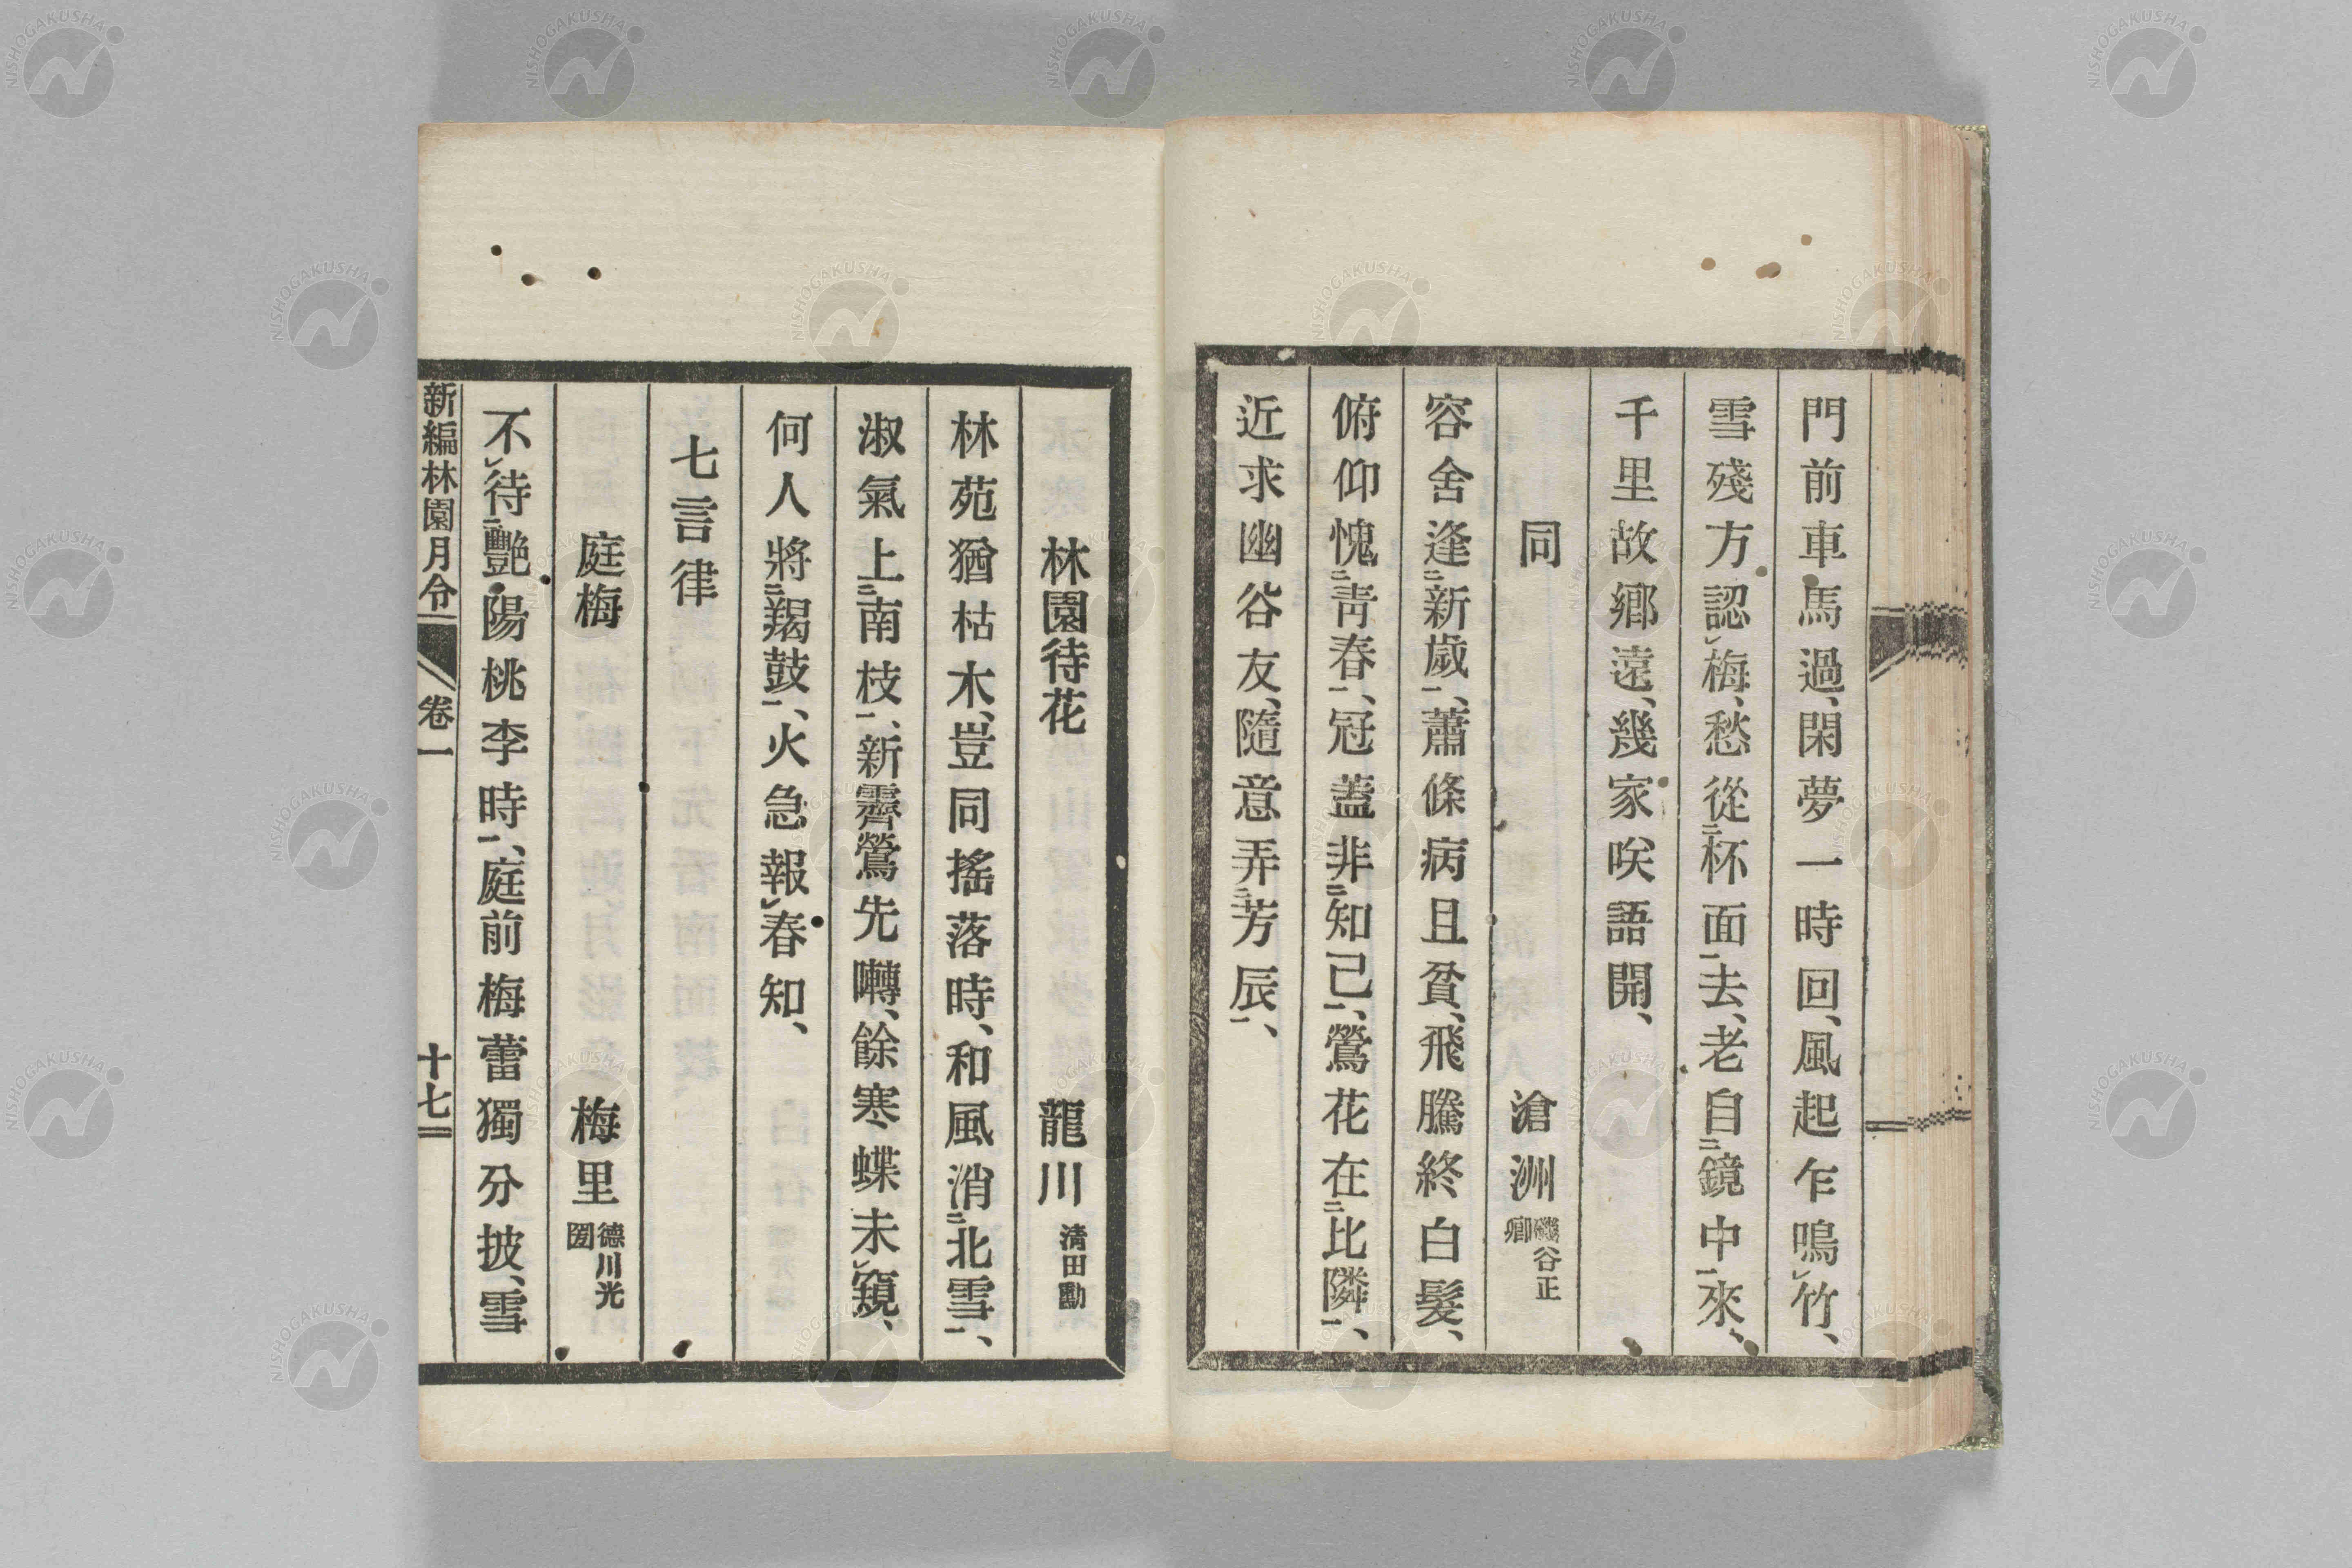 門前車馬過、閑夢一時回、風起乍鳴㆑竹、
雪殘方認㆑梅、愁從㆓杯面㆒去、老自㆓鏡中㆒來、
千里故鄕遠、幾家咲語開、
同 滄洲 磯谷正卿
容舍逢㆓新歲㆒、蕭條病且貧、飛騰終白髮、
俯仰愧㆓靑春㆒、冠蓋非㆓知己㆒、鶯花在㆓比隣㆒、
近求幽谷友、隨意弄㆓芳辰㆒、
林園待花 龍川 淸田勳
林苑猶枯木、豈同搖落時、和風消㆓北雪㆒、
淑氣上㆓南枝㆒、新霽鶯先囀、餘寒蝶未㆑窺、
何人將㆓羯鼓㆒、火急報㆑春知、
七言律
庭梅 梅里 德川光圀
不㆑待㆓艷陽桃李時㆒、庭前梅蕾獨分披、雪
新編林園月令 卷一 十七
NISHOGAKUSHA